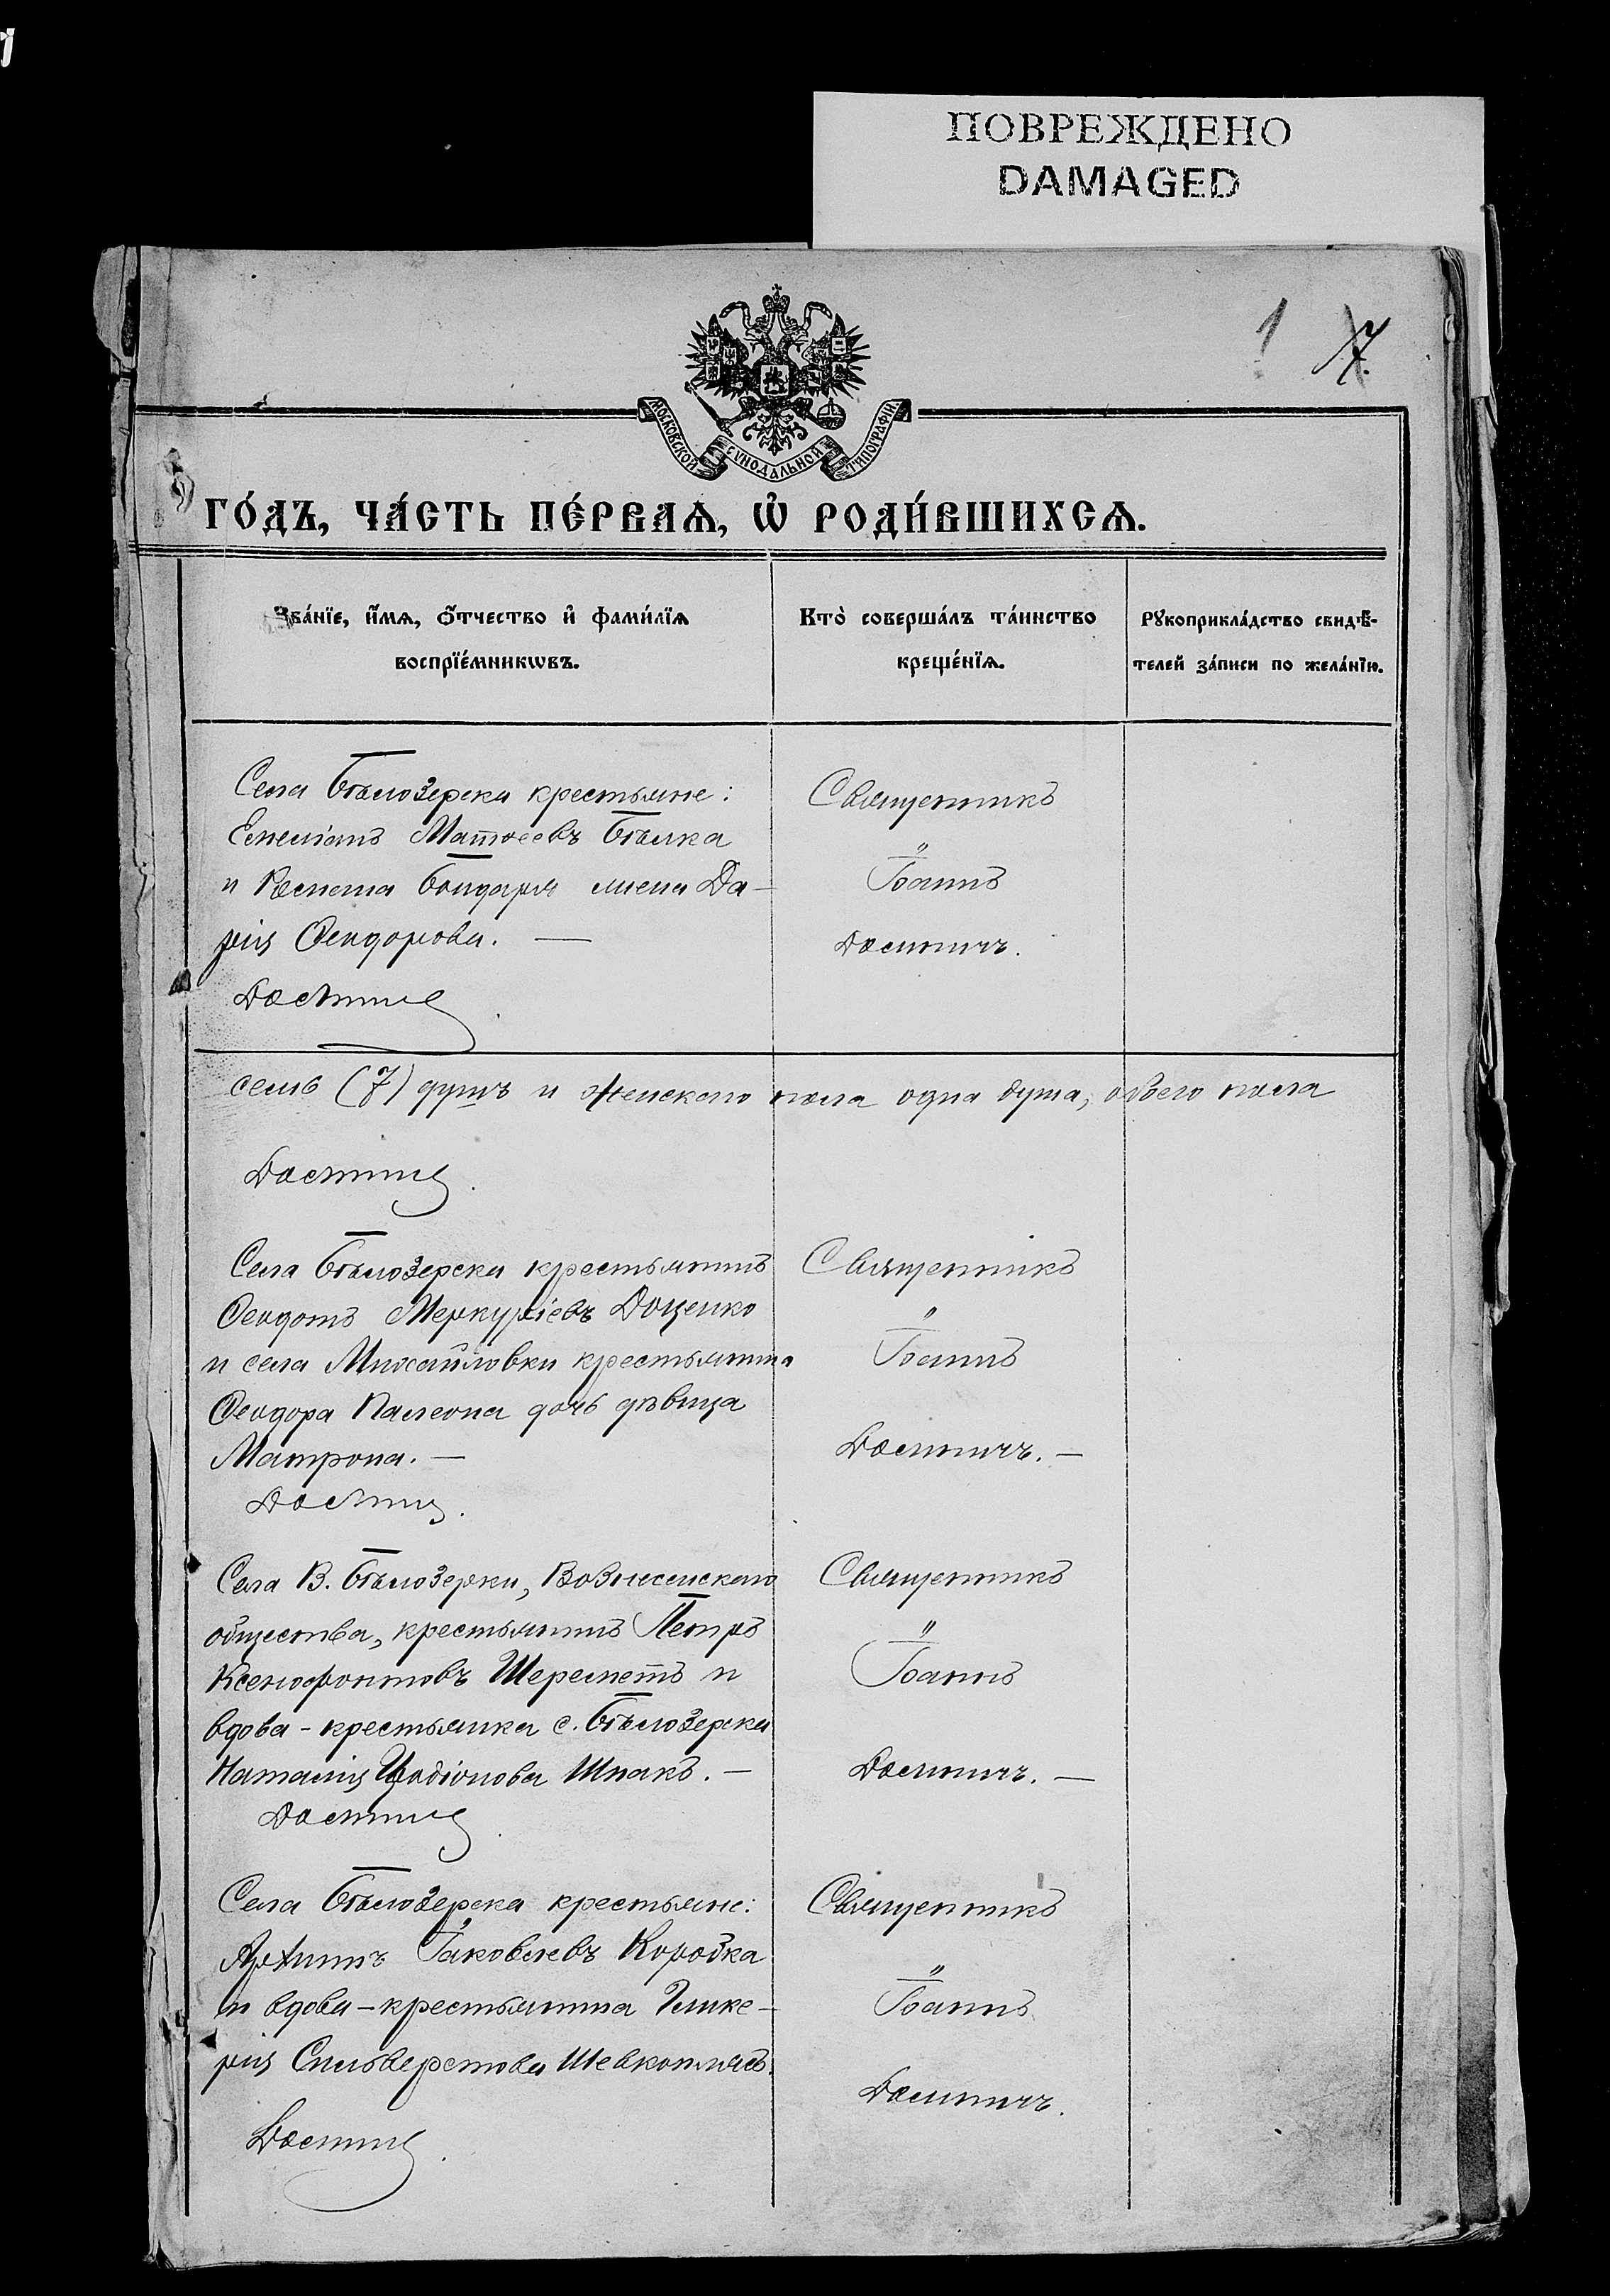 ПОВРЕЖДЕНО
DAMAGED
1 7.
МОСКОВСКОЙ СѴНОДАЛЬНОЙ ТИПОГРАФІИ
ГО́ДЪ, ЧА́СТЬ ПЕ́РВАѦ, Ѡ҆ РОДИ́ВШИХСѦ.
Зва́нїе, и҆́мѧ, ѻ҆́тчество и҆ фамі́лїѧ
воспрїе́мникѡвъ.
Кто̀ соверша́лъ та́инство
креще́нїѧ.
Рꙋкоприкла́дство свидѣ́-
телей за́писи по жела́нїю.
Села Бѣлозерска крестьяне:
Емеліанъ Матѳеевъ Бѣлка
и Бондаря жена Да-
рія Ѳеодорова. —
Священникъ
Іоаннъ
семь (7) душъ и женскаго пола одна душа, обоего пола
Села Бѣлозерски крестьянинъ
Ѳеодотъ Меркуріевъ Доценко
и села Михайловки крестьянина
Ѳеодора дочь дѣвица
Матрона. —
Священникъ
Іоаннъ
Села В. Бѣлозерки, Вознесенскаго
общества, крестьянинъ Петръ
Ксенофонтовъ Шереметъ и
вдова - крестьянка с. Бѣлозерски
Наталія Шпакъ. —
Священникъ
Іоаннъ
Села Бѣлозерска крестьяне:
Іаковлевъ Коробка
и вдова - крестьянина Глике-
рія Сильверстова Шевкоплясъ.
Священникъ
Іоаннъ